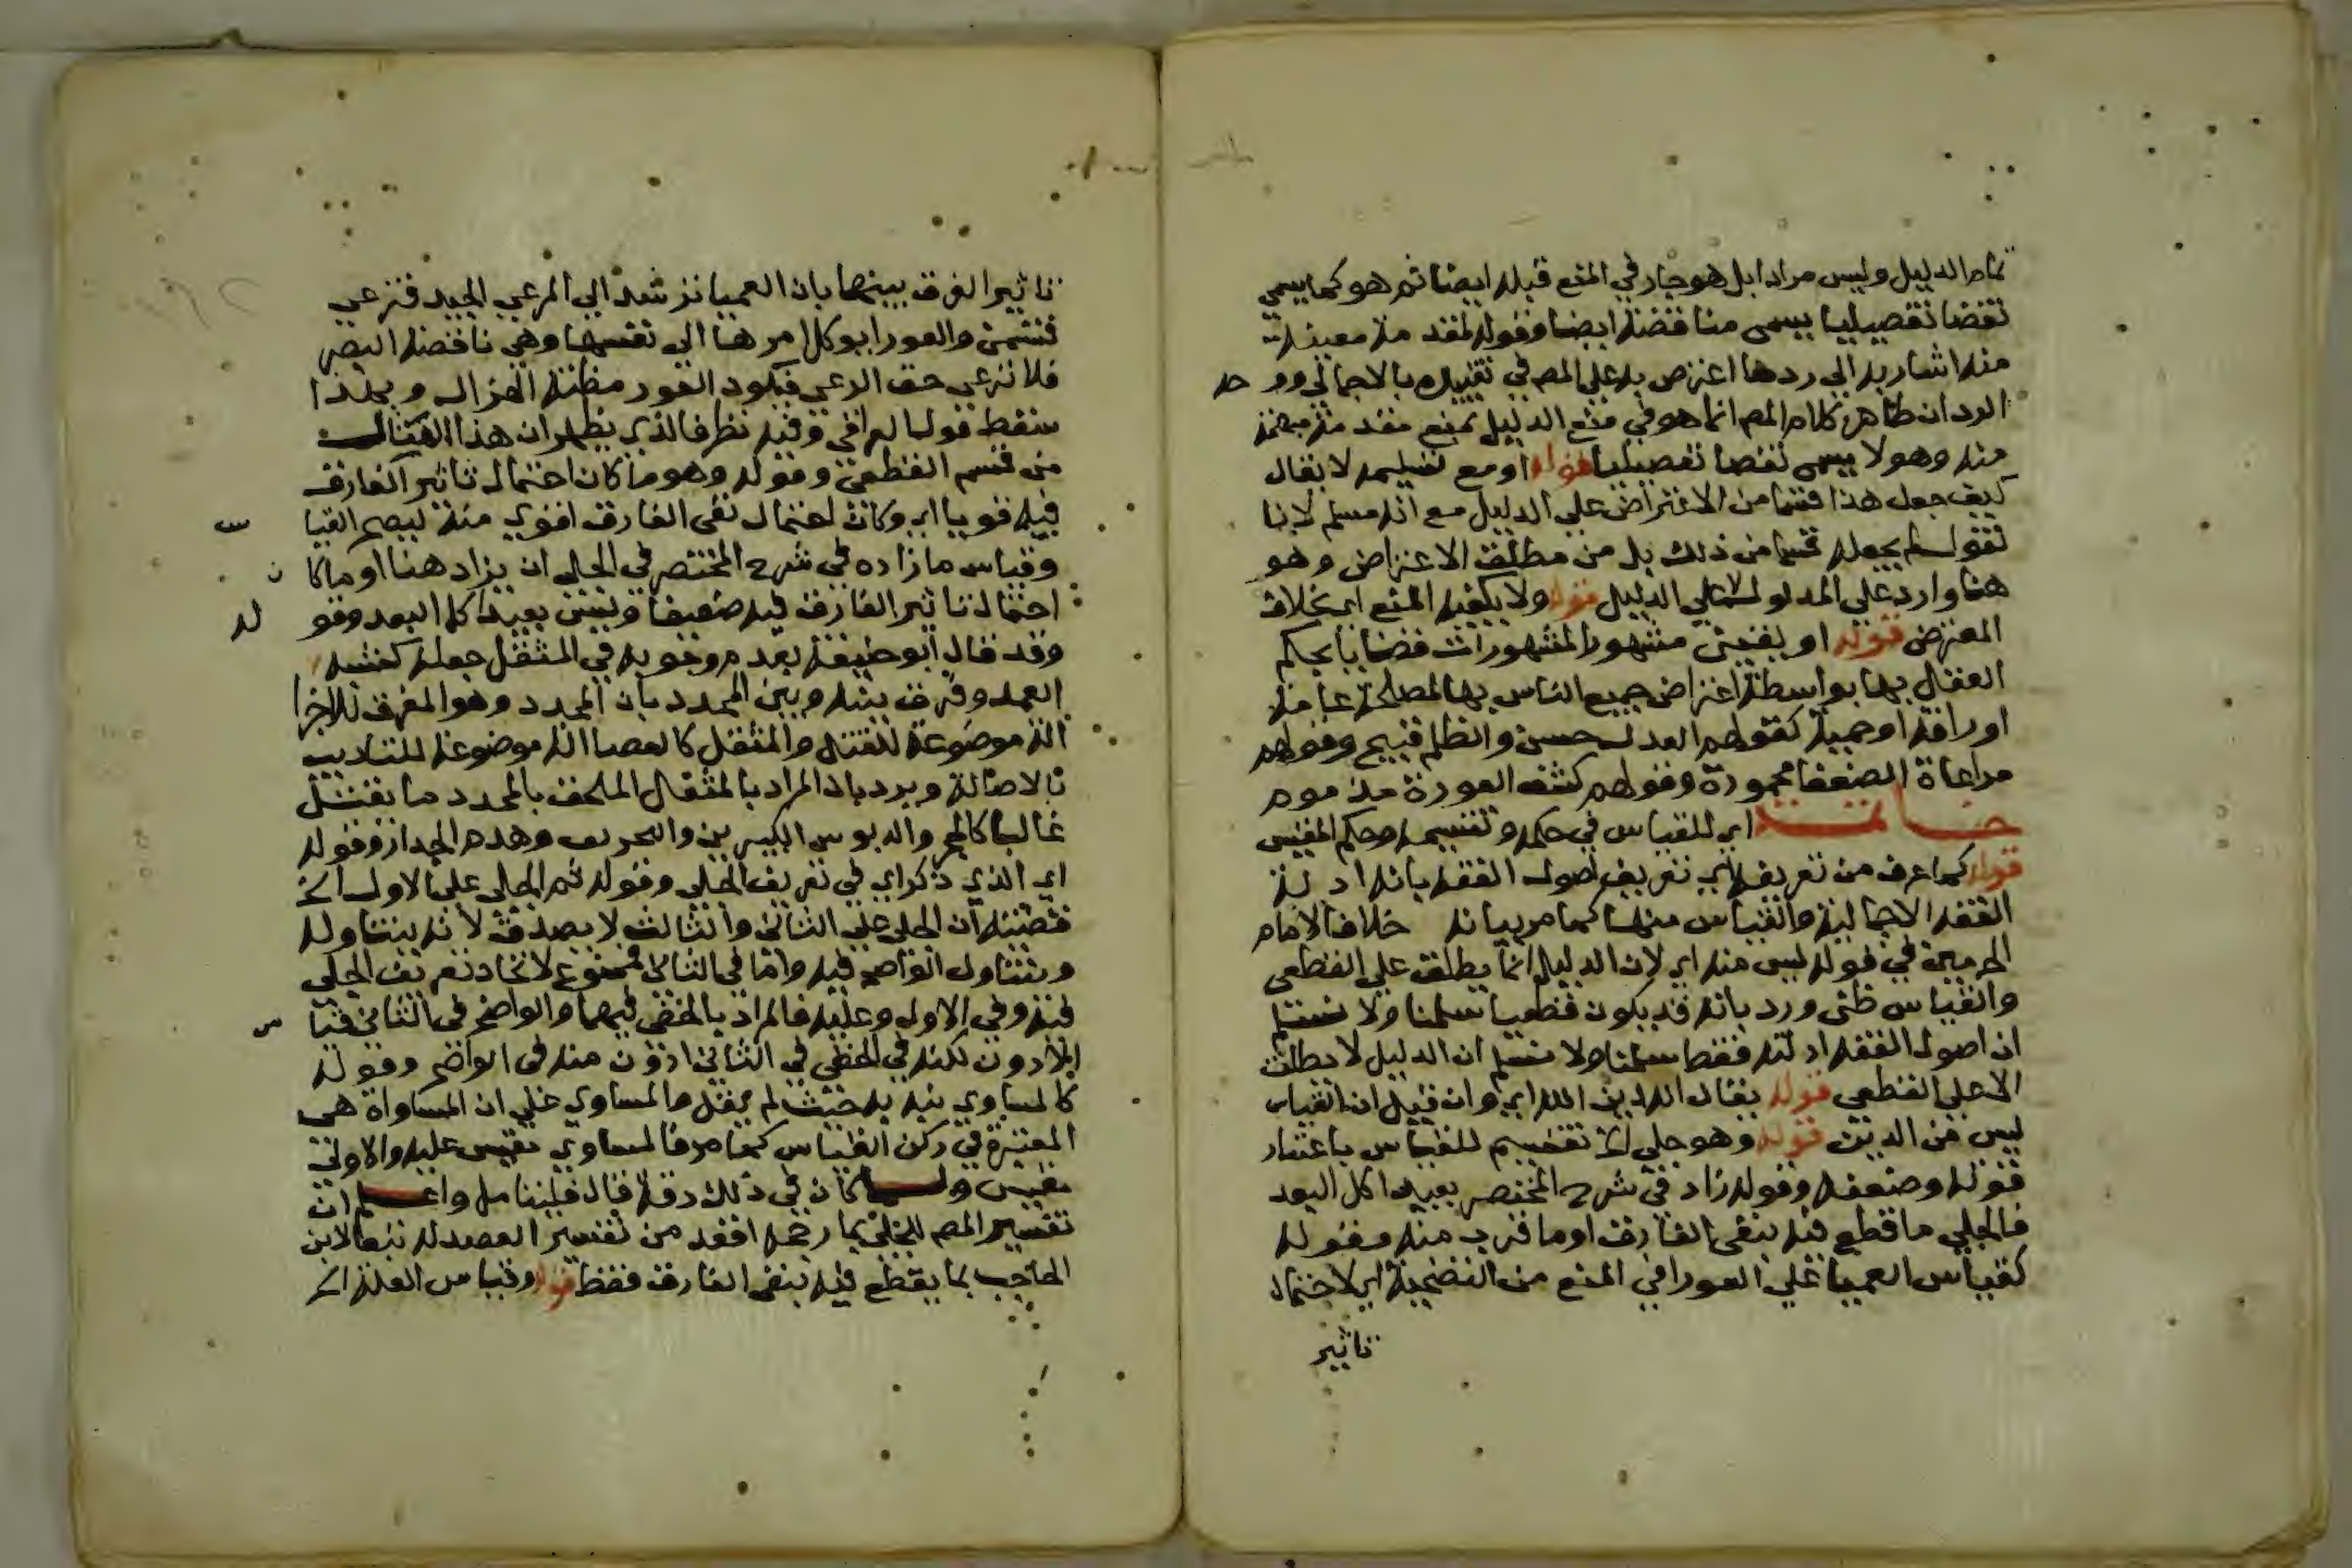 تمام الدليل وليس مرادا بل هو جار في المنع قبله ايضا ثم هو كما يسمي
نقضا تفصيليا يسمى مناقضة ايضا وقوله لمقدمة معينة
منه اشار به الى ردها اعترض به على المصم في تقييده بالاجمالي وو حه
الرد ان ظاهر كلام المصم انما هو في منع الدليل بمنع مقدمة مبهمة
منه وهو لا يسمى نقضا تفصيليا قوله او مع تسليمه لا يقال
كيف جعل هذا قسما من الاعتراض علي الدليل مع انه مسلم لانا
نقول لم يجعله قسما من ذلك بل من مطلق الاعتراض وهو
هنا وارد علي المدلول لا علي الدليل قوله ولا يكفيه المنع اي بخلاف
المعترض قوله او يقيني مشهور المشهورات قضايا يحكم
العقل بها بواسطة اعتراض جميع الناس بها لمصلحة عامة
او رافة او حمية كقولهم العدل حسن والظلم قبيح وقولهم
مراعاة الضعفا محمودة وقولهم كشف العورة مذموم
خاتمة اي للقياس في حكمه وتقسيمه وحكم المقيس
قوله كما عرف من تعريفه اي تعريف اصول الفقه بانه ادلة
الفقه الاجمالية والقياس منها كما مر بيانه خلافا لامام
الحرمين في قوله ليس منه اي لان الدليل انما يطلق علي القطعي
والقياس ظني ورد بانه قد يكون قطعيا سلمنا ولا نسلم
ان اصول الفقه ادلته فقط سلمنا ولا نسلم ان الدليل لا يطلق
الا علي القطعي قوله يقال الدين الله اي وان قيل ان القياس
ليس من الدين قوله وهو جلي الخ تقسيم للقياس باعتبار
قوته وضعفه وقوله زاد في شرح المختصر بعيدا كل البعد
فالجلي ما قطع فيه بنفي الفارق او ما قرب منه وقوله
كقياس العميا علي العورا في المنع من التضحية اي لاحتمال
تاثير
تاثير الفرق بينهما بان العميا نرشد الي المرعي الجيد فترعي
فتسمن والعورا يوكل امرها الى نفسها وهي ناقصة البصر
فلا ترعي حق الرعي فيكون العور مظنة الهزال وبهذا
سقط قول العراقي وفيه نظر فالذي يظهر ان هذا المثال
من قسم القطعي وقوله وهو ما كان احتمال تاثير الفارق
فيه قويا اي وكان احتمال نفي الفارق اقوي منه ليصح القيا س
وقياس ما زاده في شرح المختصر في الجلي ان يزاد هنا او ما كا ن
احتمال تاثير الفارق فيه ضعيفا وليس بعيدا كل البعد وقو له
وقد قال ابو حنيفة بعدم وجوبه في المثقل جعله كشبه
العمد وفرق بينه وبين المحدد بان المحدد وهو المفرق للاجزا
الة موضوعة للقتل والمثقل كالعصا الة موضوعة للتاديب
بالاصالة ويرد بان المراد بالمثقل الملحق بالمحدد ما يقتل
غالبا كالحجر والدبوس الكبيرين والتحريف وهدم الجدار وقوله
اي الذي ذكر اي في تعريف الجلي وقوله ثم الجلي علي الاول الخ
قضيته ان الجلي علي الثاني والثالث لا يصدق لانه يتناوله
ويتناول الواضح فيه واما في الثاني فممنوع لاتحاد تعريف الجلي
فيه وفي الاول وعليه فالمراد بالخفي فيهما والواضح في الثاني قيا س
الادون لكنه في الخفي في الثاني ادون منه في الواضح وقوله
كالمساوي فيه به حيث لم يقل والمساوي علي ان المساواة هي
المعتبرة في ركن القياس كما مر فالمساوي مقيس عليه والاولى
مقيس ولما كان في ذلك دقة قال فليتامل واعلم ان
تفسير المصم للجلي بما رجحه اقعد من تفسير العضد له تبعا لابن
الحاجب بما يقطع فيه بنفي الفارق فقط قوله وقياس العلة الخ